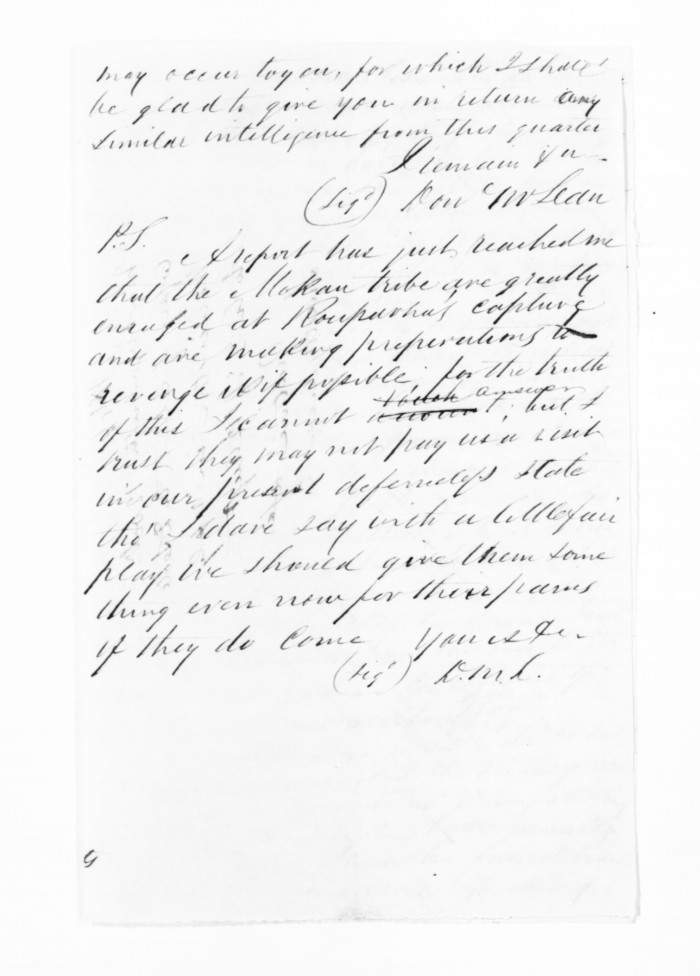 may occur to you, for which I shall
be glad to give you in return any
similar intelligence from this quarter
I remain &c
(Sigd) Don McLean
P.S.
A report has just reached me
that the Mokau tribe are greatly
enraged at Rauparaha's capture
and are making preparations to
revenge it if possible, for the truth
of this I cannot answer, but I
trust they may not pay us a visit
in our present defenceless state
tho' I dare say with a little fair
play we should give them some
thing even now for their pains
if they do come Yours &c
(Sigd) D. McL.
G